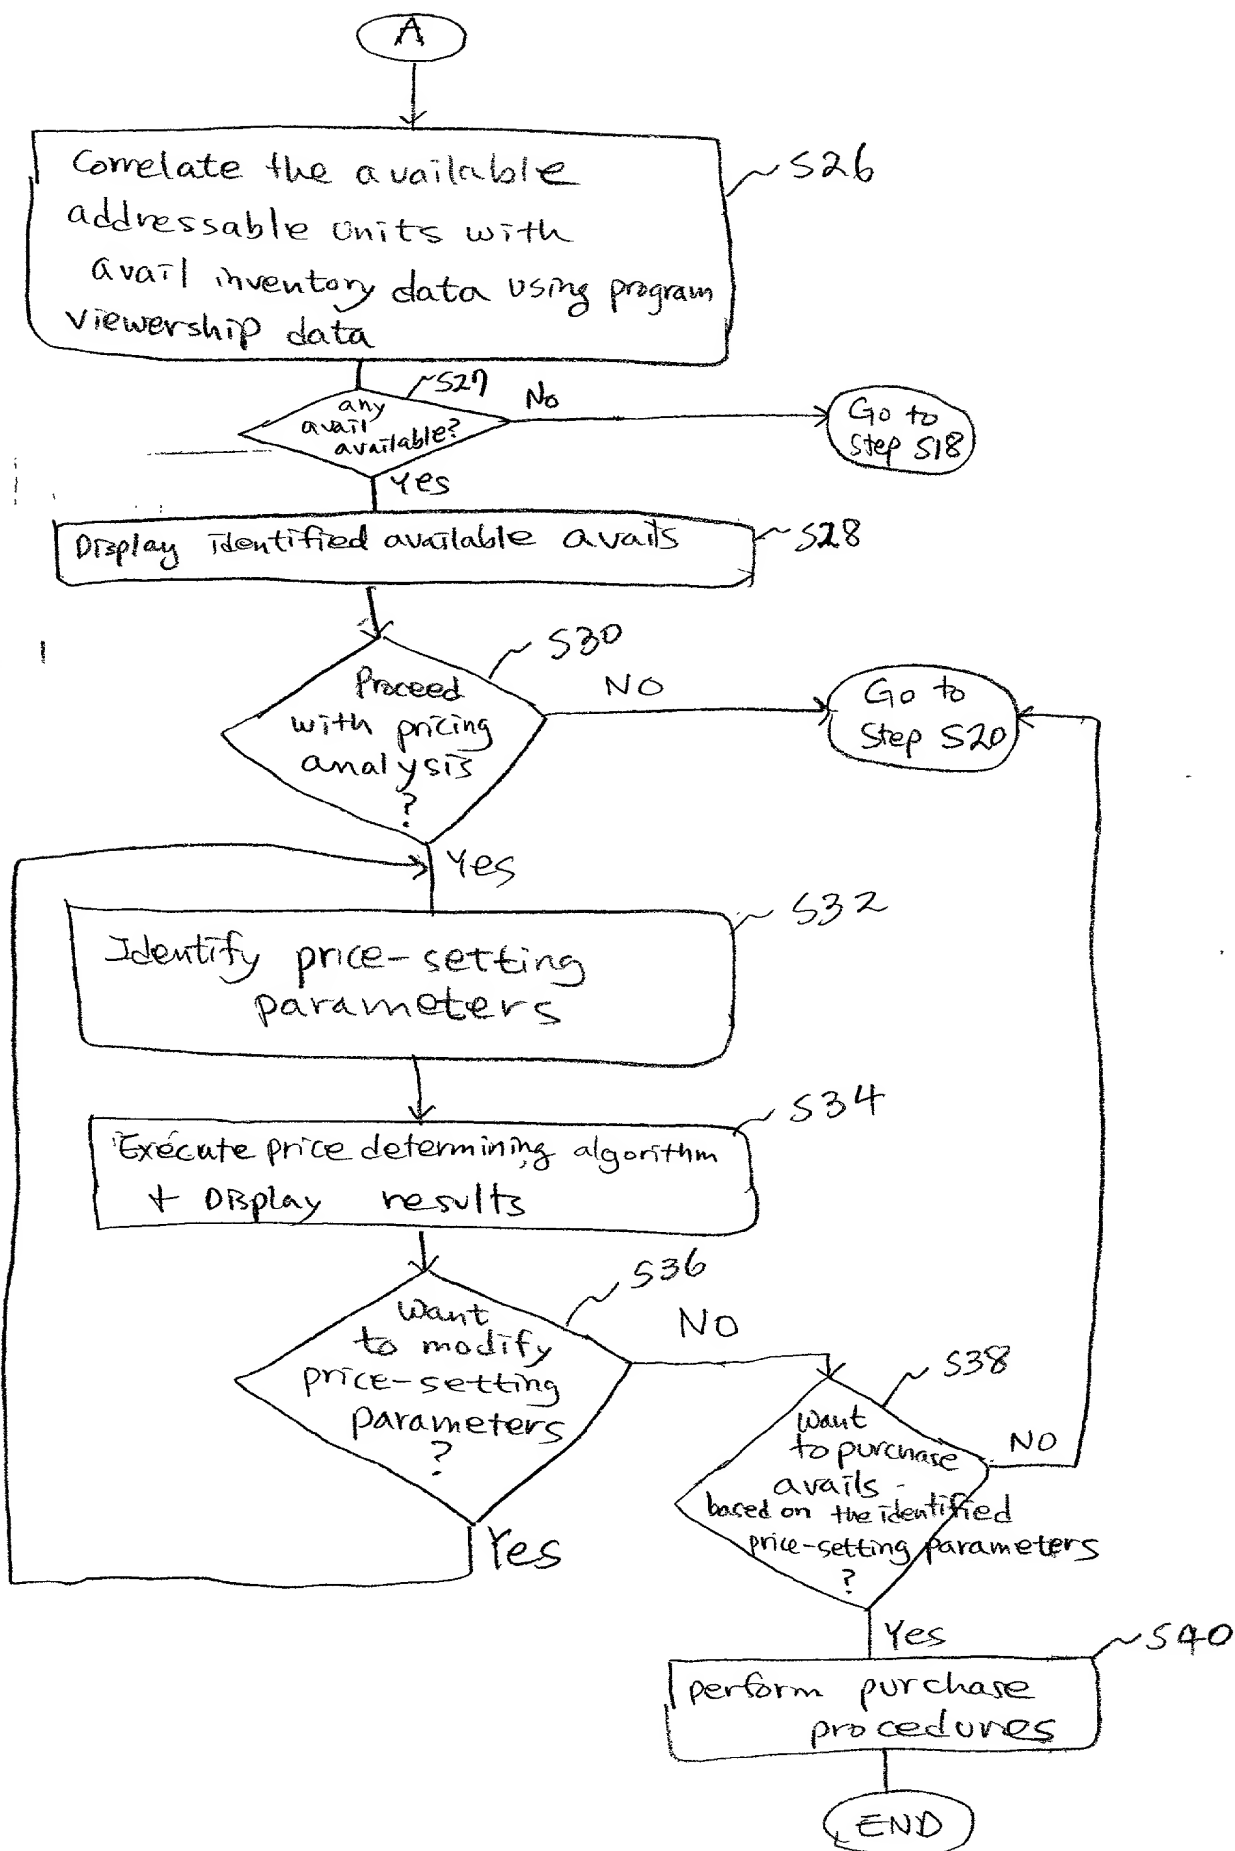 A
Correlate the available
addressable units with
avail inventory data using program
viewership data
S26
any
avail
available?
S27
No
Go to
Step S18
Yes
Display identified available avails
S28
Proceed
with pricing
analysis
?
S30
NO
Go to
Step S20
Yes
Identify price-setting
parameters
S32
Execute price determining algorithm
+ Display results
S34
Want
to modify
price-setting
parameters
?
S36
NO
Yes
Want
to purchase
avails
based on the identified
price-setting parameters
?
S38
NO
Yes
perform purchase
procedures
S40
END